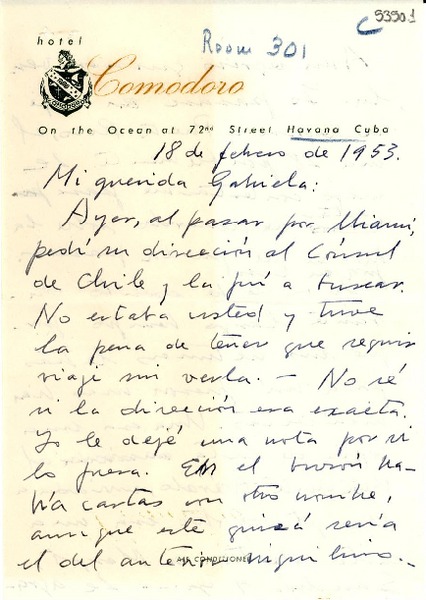 53501
hotel
Room 301
Comodoro
On the Ocean at 72nd Street Havana Cuba
18 de febrero de 1953.
Mi querida Gabriela:
Ayer, al pasar por Miami,
pedí su dirección al Cónsul
de Chile y la fuí a buscar.
No estaba usted y tuve
la pena de tener que seguir
viaje sin verla. — No sé
si la dirección era exacta.
Yo le dejé una nota por si
lo fuera. En el buzón ha-
bía cartas con otro nombre,
aunque éste quizá sería
el del anterior inquilino. -
AIR CONDITIONED